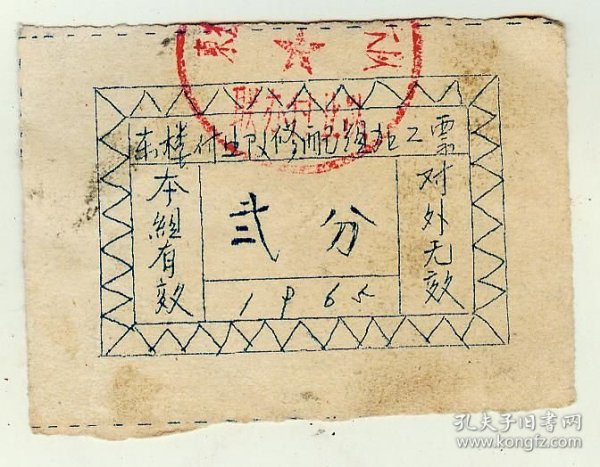 东楼付业改修配组记工票
本组有效
贰分
对外无效
1965
孔夫子旧书网
www.kongfz.com